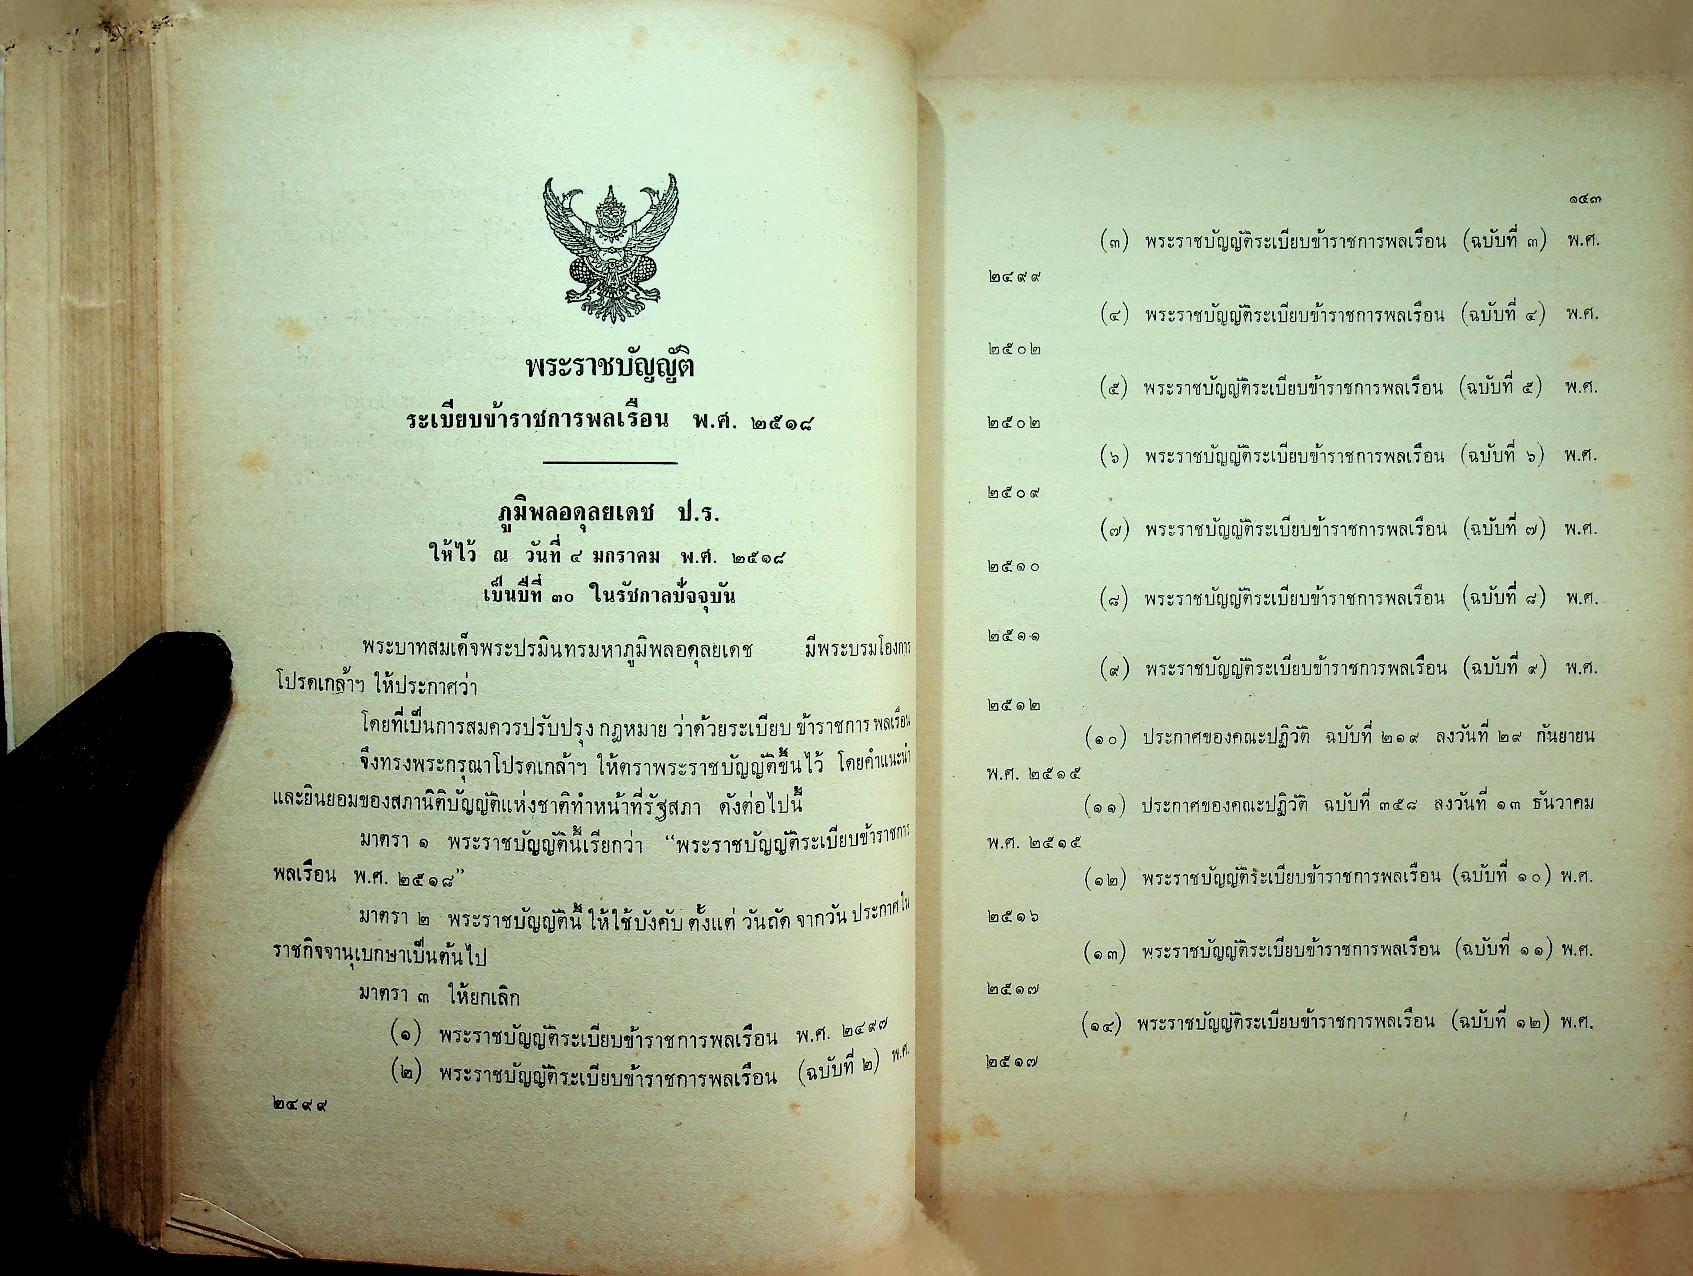 พระราชบัญญัติ
ระเบียบข้าราชการพลเรือน พ.ศ. ๒๕๑๘
ภูมิพลอดุลยเดช ป.ร.
ให้ไว้ ณ วันที่ ๔ มกราคม พ.ศ. ๒๕๑๘
เป็นปีที่ ๓๐ ในรัชกาลปัจจุบัน
พระบาทสมเด็จพระปรมินทรมหาภูมิพลอดุลยเดช มีพระบรมโองการ
โปรดเกล้าฯ ให้ประกาศว่า
โดยที่เป็นการสมควรปรับปรุง กฎหมาย ว่าด้วยระเบียบ ข้าราชการ พลเรือน
จึงทรงพระกรุณาโปรดเกล้าฯ ให้ตราพระราชบัญญัติขึ้นไว้ โดยคำแนะนำ
และยินยอมของสภานิติบัญญัติแห่งชาติทำหน้าที่รัฐสภา ดังต่อไปนี้
มาตรา ๑ พระราชบัญญัตินี้เรียกว่า “พระราชบัญญัติระเบียบข้าราชการ
พลเรือน พ.ศ. ๒๕๑๘”
มาตรา ๒ พระราชบัญญัตินี้ ให้ใช้บังคับ ตั้งแต่ วันถัด จากวัน ประกาศ ใน
ราชกิจจานุเบกษาเป็นต้นไป
มาตรา ๓ ให้ยกเลิก
(๑) พระราชบัญญัติระเบียบข้าราชการพลเรือน พ.ศ. ๒๔๙๗
(๒) พระราชบัญญัติระเบียบข้าราชการพลเรือน (ฉบับที่ ๒) พ.ศ.
๒๔๙๙
๑๔๓
(๓) พระราชบัญญัติระเบียบข้าราชการพลเรือน (ฉบับที่ ๓) พ.ศ.
๒๔๙๙
(๔) พระราชบัญญัติระเบียบข้าราชการพลเรือน (ฉบับที่ ๔) พ.ศ.
๒๕๐๒
(๕) พระราชบัญญัติระเบียบข้าราชการพลเรือน (ฉบับที่ ๕) พ.ศ.
๒๕๐๒
(๖) พระราชบัญญัติระเบียบข้าราชการพลเรือน (ฉบับที่ ๖) พ.ศ.
๒๕๐๙
(๗) พระราชบัญญัติระเบียบข้าราชการพลเรือน (ฉบับที่ ๗) พ.ศ.
๒๕๑๐
(๘) พระราชบัญญัติระเบียบข้าราชการพลเรือน (ฉบับที่ ๘) พ.ศ.
๒๕๑๑
(๙) พระราชบัญญัติระเบียบข้าราชการพลเรือน (ฉบับที่ ๙) พ.ศ.
๒๕๑๒
(๑๐) ประกาศของคณะปฏิวัติ ฉบับที่ ๒๑๙ ลงวันที่ ๒๙ กันยายน
พ.ศ. ๒๕๑๕
(๑๑) ประกาศของคณะปฏิวัติ ฉบับที่ ๓๕๘ ลงวันที่ ๑๓ ธันวาคม
พ.ศ. ๒๕๑๕
(๑๒) พระราชบัญญัติระเบียบข้าราชการพลเรือน (ฉบับที่ ๑๐) พ.ศ.
๒๕๑๖
(๑๓) พระราชบัญญัติระเบียบข้าราชการพลเรือน (ฉบับที่ ๑๑) พ.ศ.
๒๕๑๗
(๑๔) พระราชบัญญัติระเบียบข้าราชการพลเรือน (ฉบับที่ ๑๒) พ.ศ.
๒๕๑๗